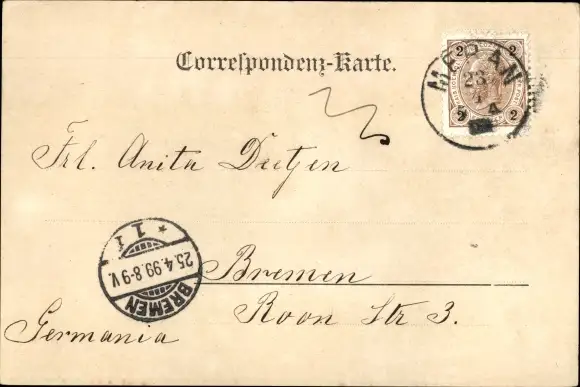 Correspondenz-Karte.
2 2
MERAN
23
4
2 2
Frl. Anita Dutjen
1 f
25.4.99.8-9V.
BREMEN
Bremen
Roon Str 3.
Germania